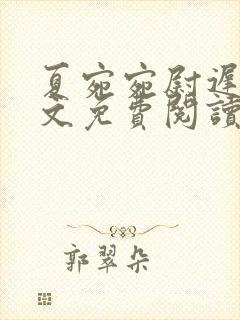 夏宛宛尉遲
文免費閱讀
郭翠朵